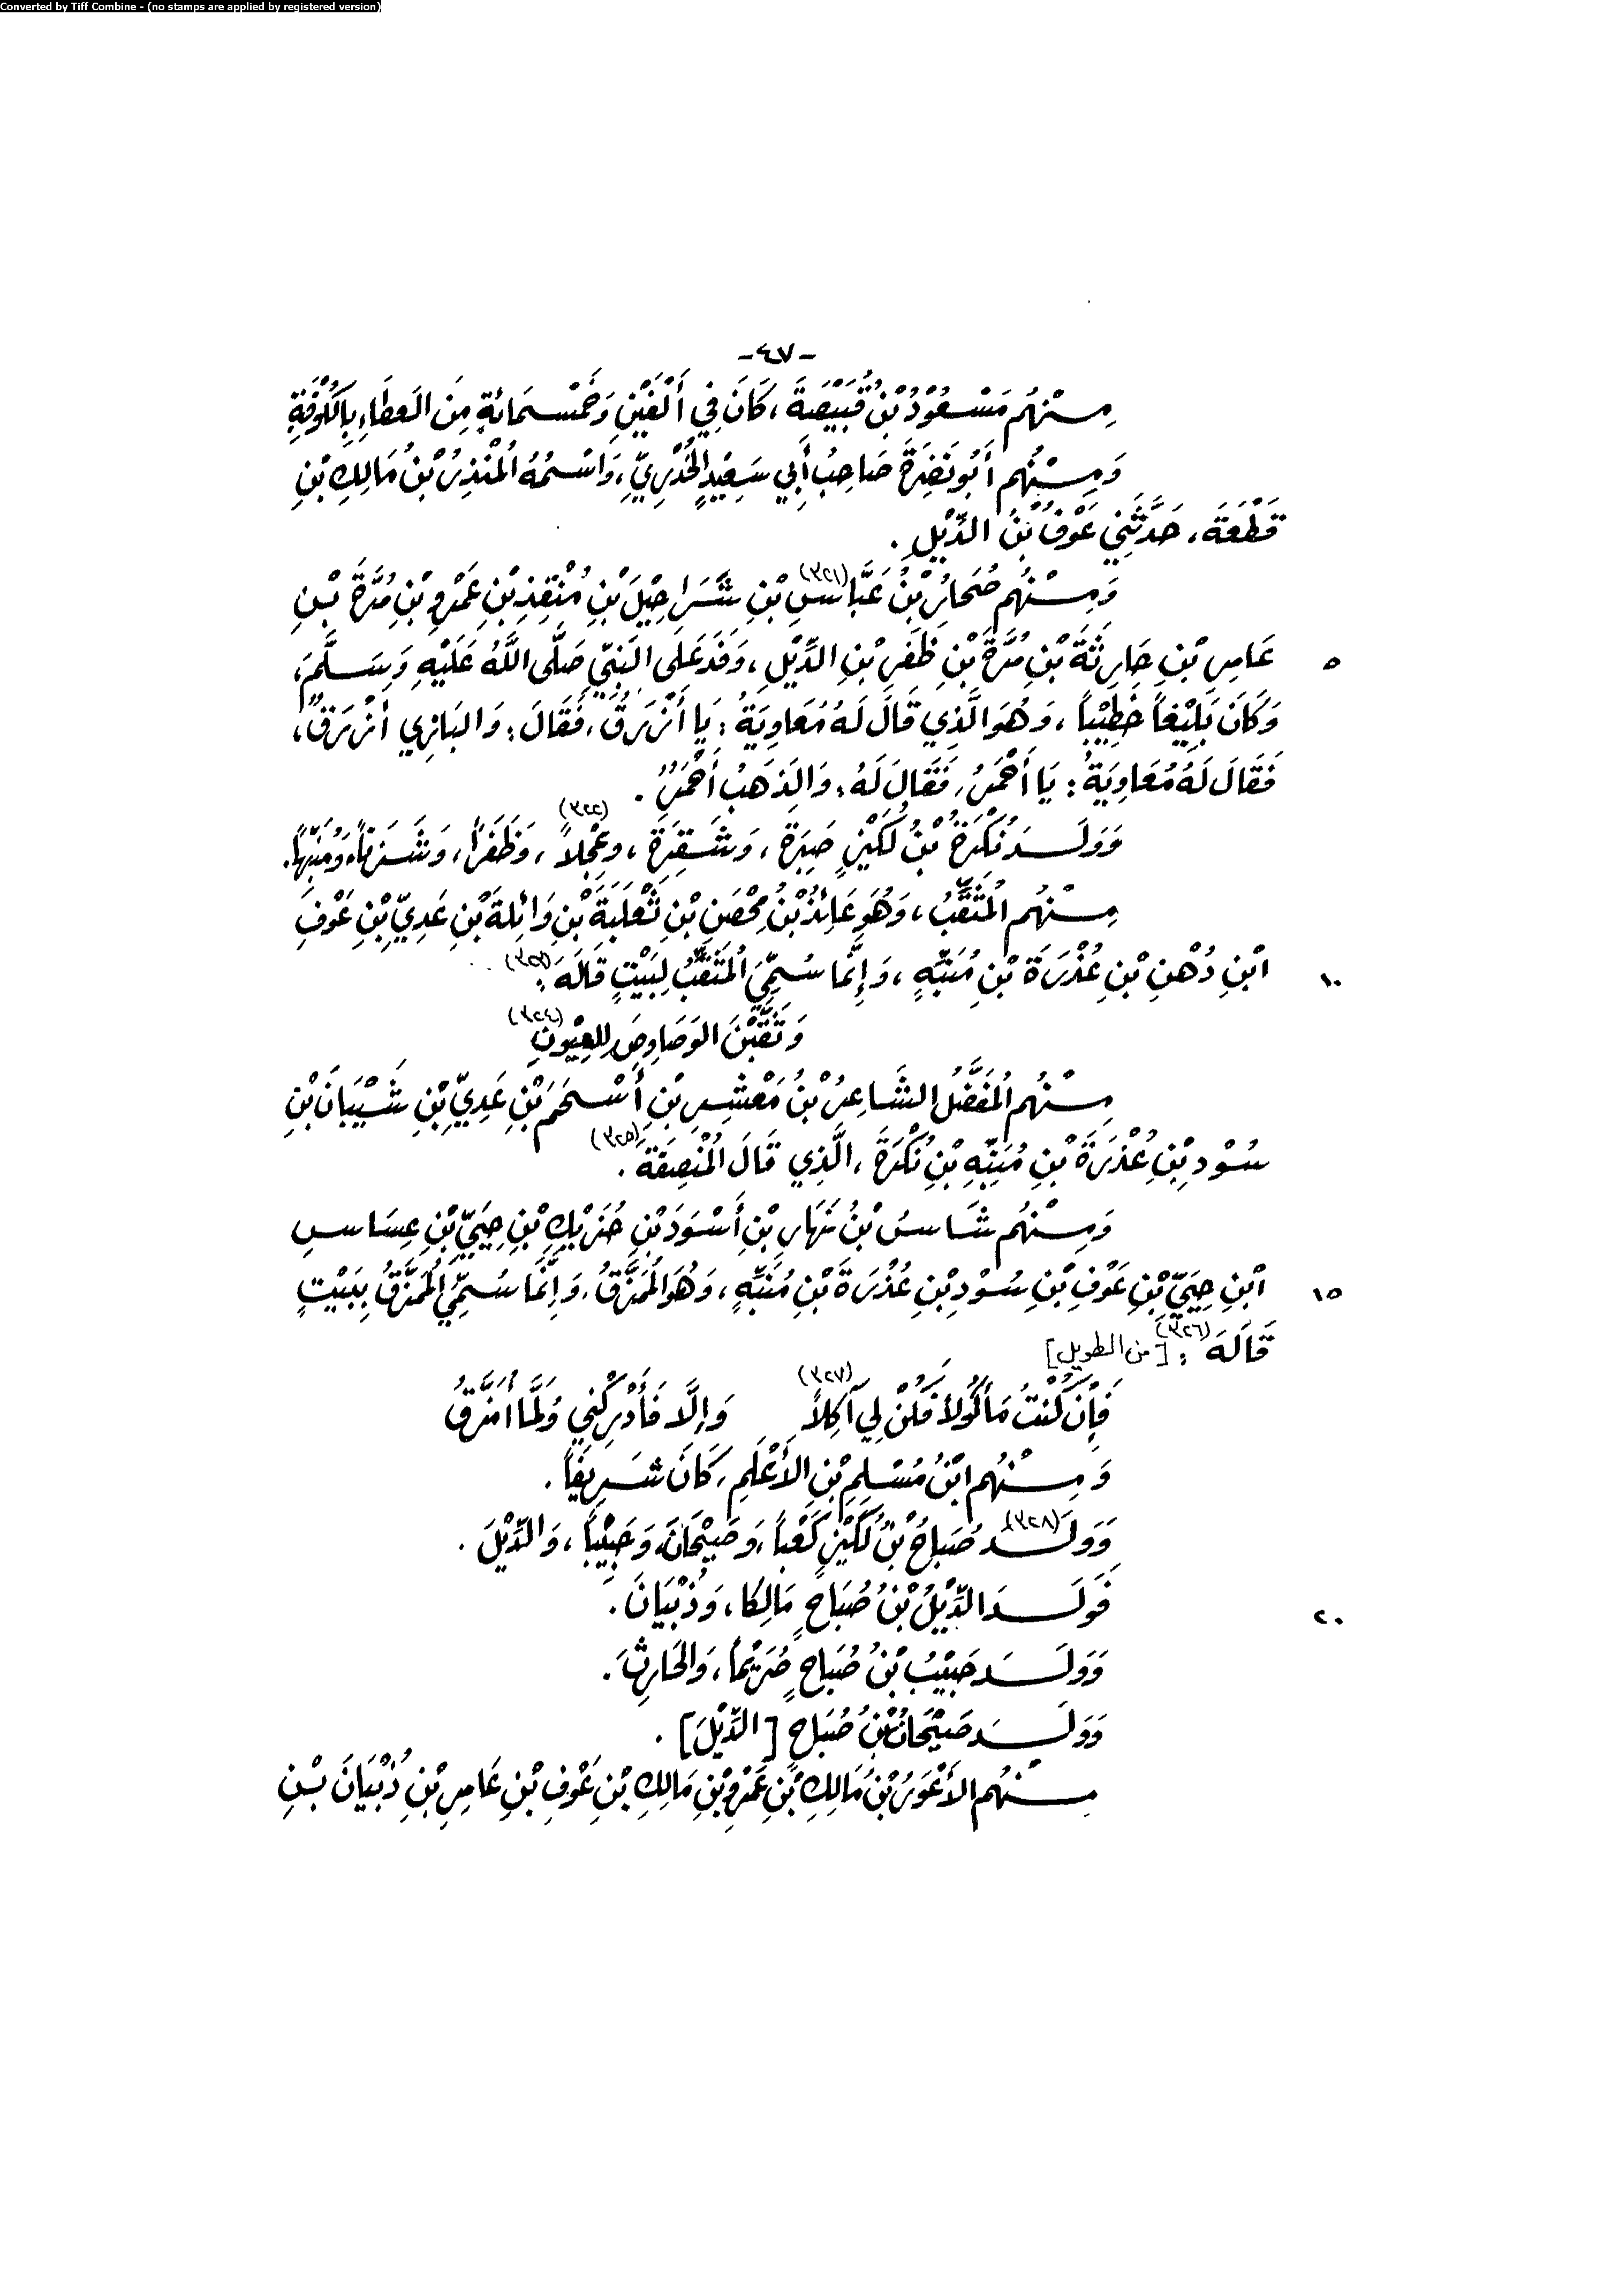 Converted by Tiff Combine - (no stamps are applied by registered version)
-٤٧-
مِنْهُم مَسْعُوْدُ بْنُ قَبِيْصَةَ، كَانَ فِي أَلْفَيْنِ وَخَمْسِمَائةٍ مِنَ العَطَاءِ بِالكُوْفَةِ
وَمِنْهُم أَبُو نَضِرَةَ صَاحِبُ أَبِي سَعِيْدٍ الخُدْرِيِّ، وَاسْمُهُ الُمْنْذِرُ بْنُ مَالِكِ بْنِ
قَطْعَةَ، حَدَّثَنِي عَوْفُ بْنُ الدِّيْلِ.
وَمِنْهُم صُحَارُ بْنُ عَبَّاسِ (٣٢١) بْنِ شَرَاحِيْلَ بْنِ مُنْقِذِ بْنِ عَمْرِو بْنِ مُرَّةَ بْنِ
٥ عَامِرِ بْنِ حَارِثَةَ بْنِ مُرَّةَ بْنِ ظَفَرِ بْنِ الدِّيْلِ، وَفَدَ عَلَى النَّبِيِّ صَلَّى اللَّهُ عَلَيْهِ وَسَلَّمَ،
وَكَانَ بَلِيْغاً خَطِيْباً، وَهُوَ الَّذِي قَالَ لَهُ مُعَاوِيَةُ: يَا أَزْرَقُ، فَقَالَ: وَالبَازِي أَزْرَقُ،
فَقَالَ لَهُ مُعَاوِيَةُ: يَا أَحْمَرُ، فَقَالَ لَهُ: وَالذَهَبُ أَحْمَرُ.
وَوَلَدَ نُكْرَةُ بْنُ لُكَيْزٍ صَبِرَةَ، وَشَقِرَةَ، وعِجْلاً (٣٢٢)، وَظَفَراً، وَشَزَناً، وَمُنَبِّهاً.
مِنْهُم الُمثَقِّبُ، وَهُوَ عَائِذُ بْنُ مِحْصَنِ بْنِ ثَعْلَبَةَ بْنِ وَائِلَةَ بْنِ عَدِيِّ بْنِ عَوْفِ
١٠ ابْنِ دُهْنِ بْنِ عُذْرَةَ بْنِ مُنَبِّهٍ، وَإِنَّمَا سُمِّيَ الُمثَقِّبُ لِبَيْتٍ قَالَهُ (٣٢٣):
وَثَقَّبْنَ الوَصَاوِصَ لِلعُيُونِ (٣٢٤)
مِنْهُم الُمفَضَّلُ الشَّاعِرُ بْنُ مَعْشَرِ بْنِ أَسْحَمَ بْنِ عَدِيِّ بْنِ شَيْبَانَ بْنِ
سُوْدِ بْنِ عُذْرَةَ بْنِ مُنَبِّهِ بْنِ نُكْرَةَ، الَّذِي قَالَ الُمنْصِفَةَ (٣٢٥).
وَمِنْهُم شَاسُ بْنُ نَهَارِ بْنِ أَسْوَدَ بْنِ حُزَيْكِ بْنِ حِيَيِّ بْنِ عِسَاسِ
١٥ ابْنِ حِيَيِّ بْنِ عَوْفِ بْنِ سُوْدِ بْنِ عُذْرَةَ بْنِ مُنَبِّهٍ، وَهُوَ الُممَزَّقُ، وَإِنَّمَا سُمِّيَ الُممَزَّقُ بِبَيْتٍ
قَالَهَ (٣٢٦): [من الطويل]
فَإِنْ كُنْتُ مَأكُولاً فَكُنْ لِي آكِلاً (٣٢٧) وَإِلَّا فَأَدْرِكْنِي وَلَمَّا أُمَزَّقُ
وَمِنْهُم ابْنُ مُسْلِمِ بْنِ الأَعْلَمِ، كَانَ شَرِيفاً.
وَوَلَدَ (٣٢٨) صُبَاحُ بْنُ لُكَيْزٍ كَعْباً، وَصَبِيْحَانَ، وَحَبِيْباً، وَالدِّيْلَ.
٢٠ فَوَلَدَ الدِّيْلُ بْنُ صُبَاحٍ مَالِكَا، وَذُبْيَانَ.
وَوَلَدَ حَبِيْبُ بْنُ صُبَاحٍ صُرَيْماً، وَالحَارِثَ.
وَوَلَدَ صَبِيْحَانُ بْنُ صُبَاحٍ [الدِّيْلَ].
مِنْهُم الأَعْوَرُ بْنُ مَالِكِ بْنِ عَمْرِو بْنِ مَالِكِ بْنِ عَوْفِ بْنِ عَامِرِ بْنِ ذُبْيَانَ بْنِ